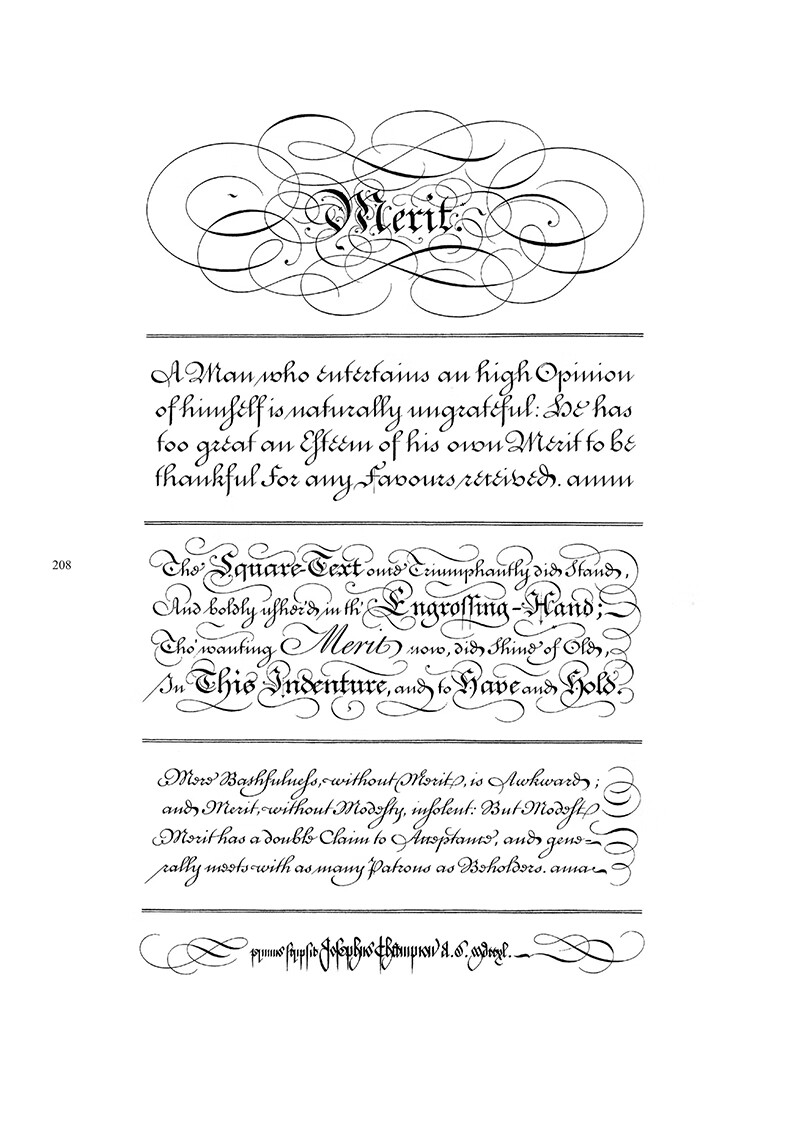 Merit.
A Man who entertains an high Opinion
of himself is naturally ungrateful: He has
too great an Esteem of his own Merit to be
thankful For any Favours received. amm
208
The Square-Text once Triumphantly did Stand,
And boldly usher'd in th' Engrossing-Hand;
Tho' wanting Merit now, did Shine of Old,
In This Indenture, and to Have and Hold.
Mere Bashfulness, without Merit, is Awkward;
and Merit, without Modesty, insolent: But Modest
Merit has a double Claim to Acceptance, and gene-
rally meets with as many Patrons as Beholders. ama
Josephus Champion A.S.